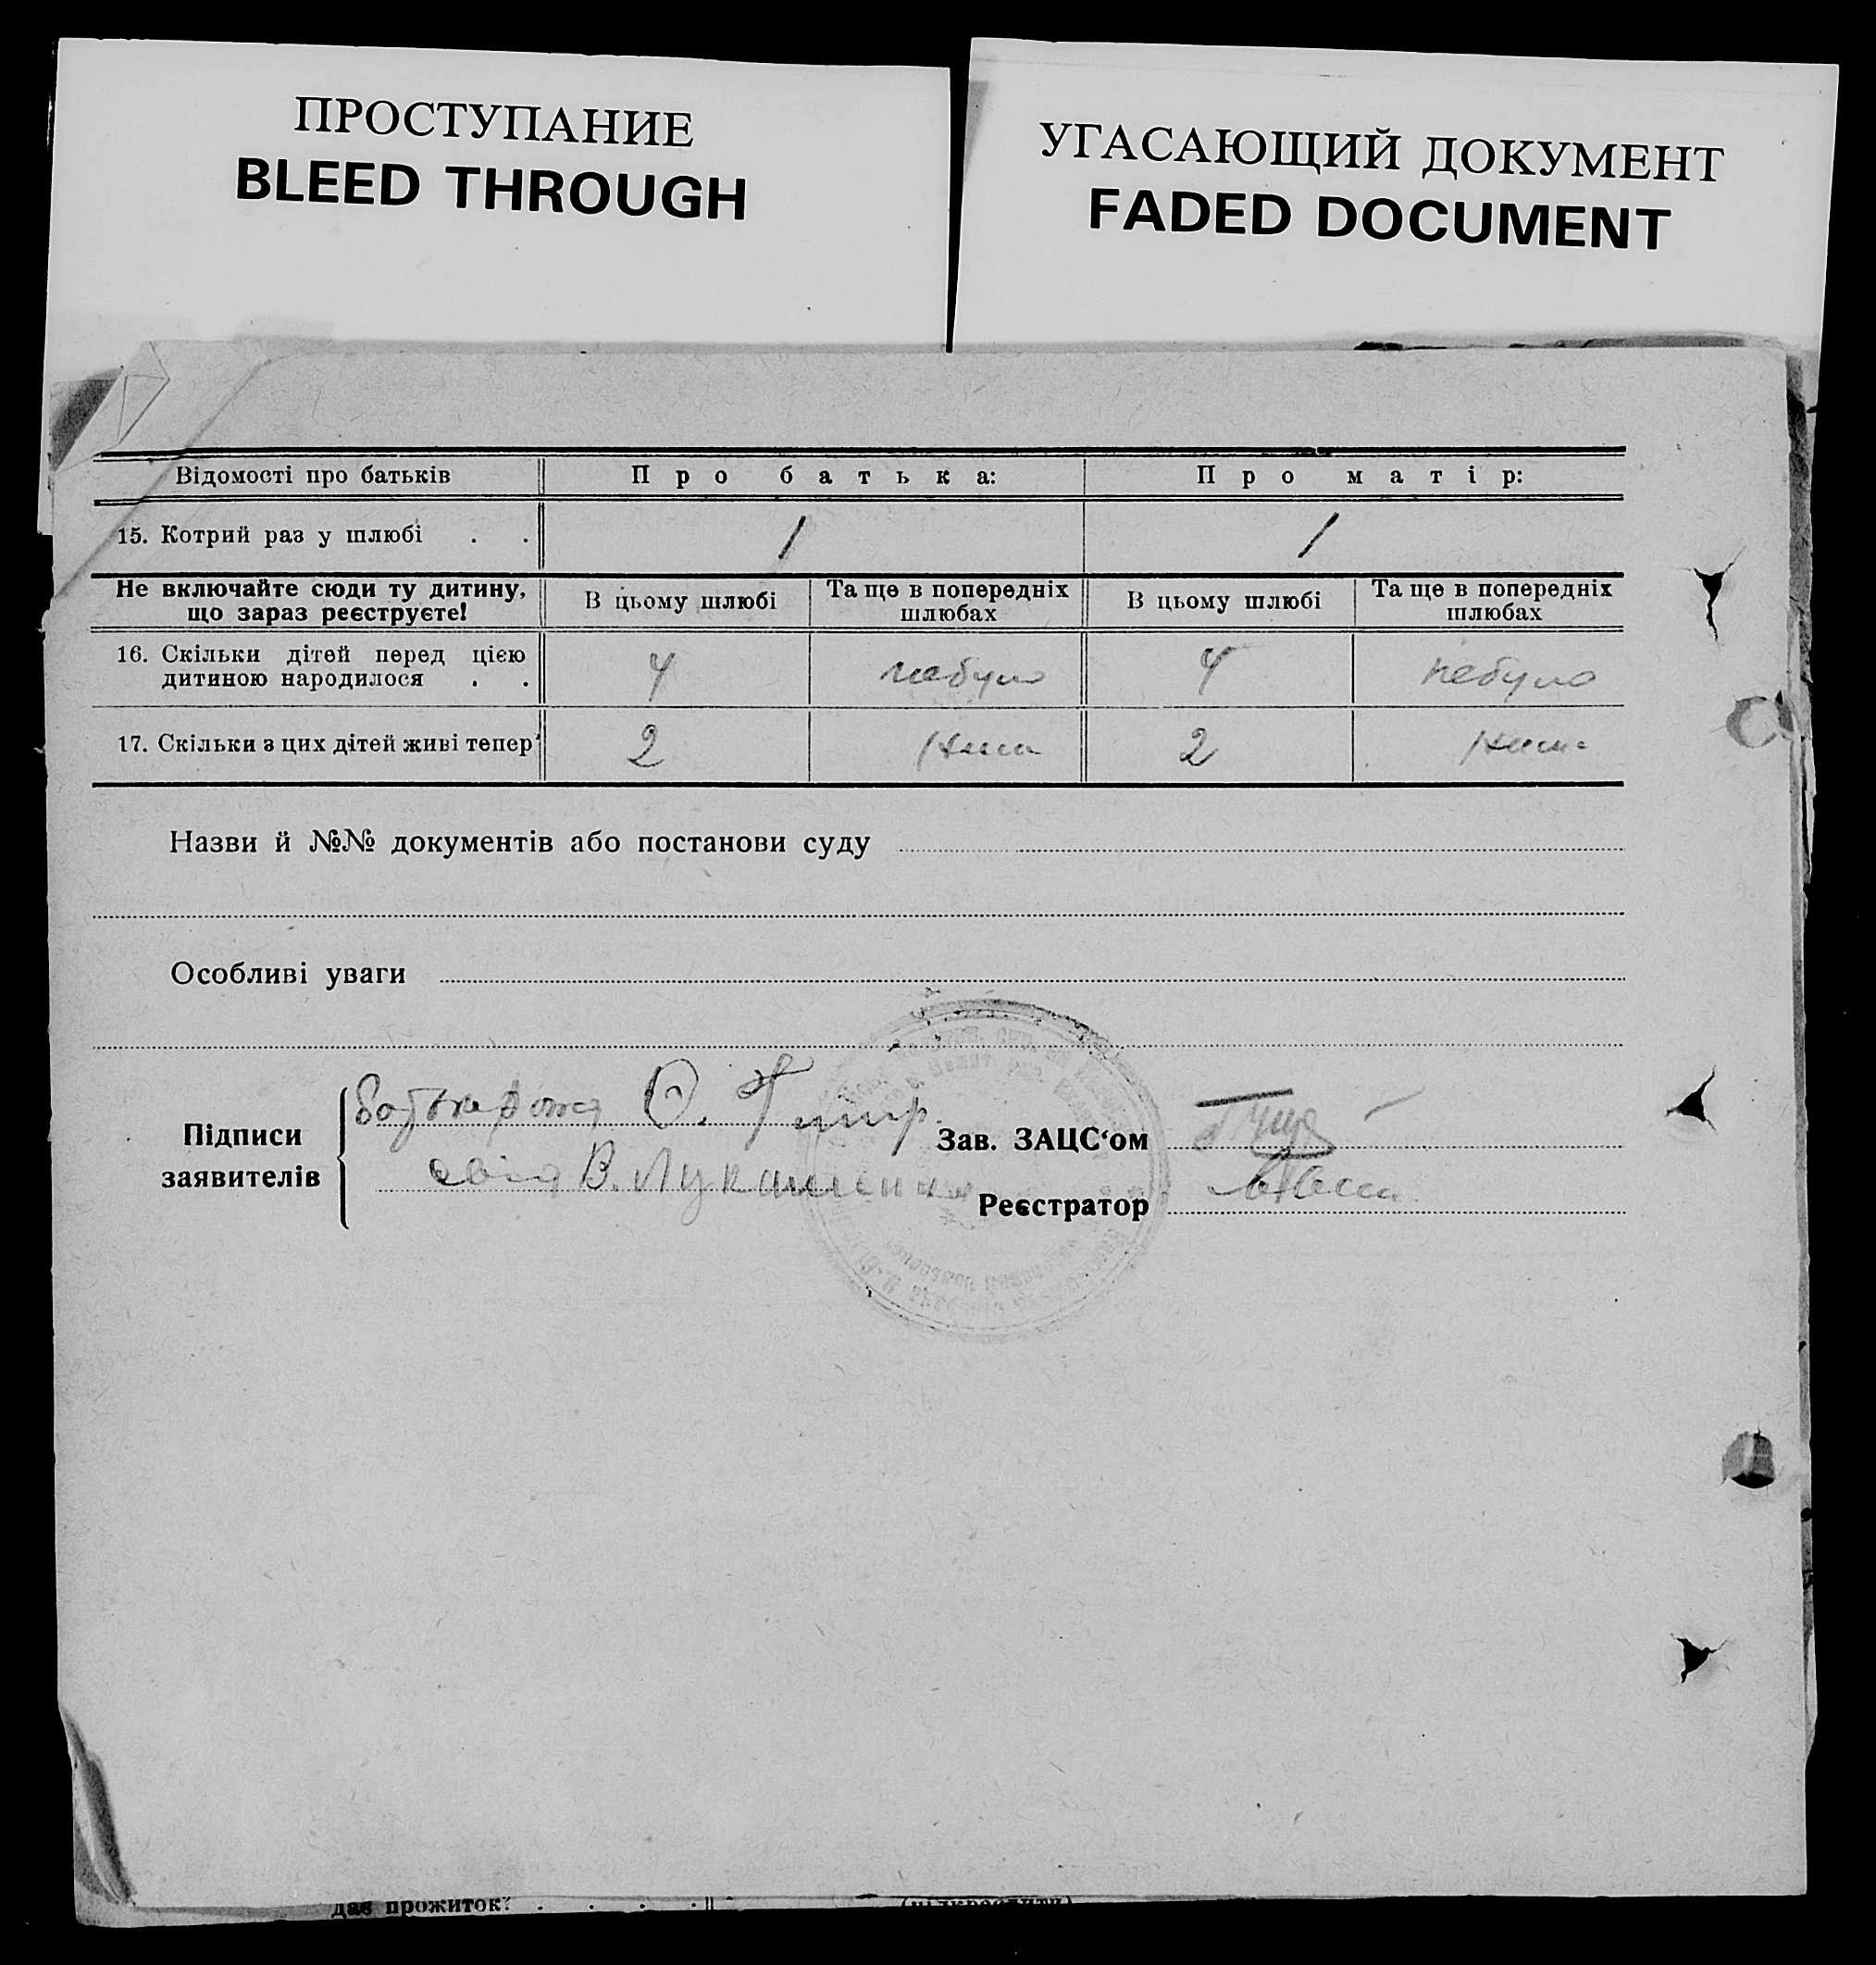 ПРОСТУПАНИЕ
BLEED THROUGH
УГАСАЮЩИЙ ДОКУМЕНТ
FADED DOCUMENT
Відомості про батьків Про батька: Про матір:
15. Котрий раз у шлюбі . . 1 1
Не включайте сюди ту дитину, що зараз реєструєте! В цьому шлюбі Та ще в попередніх шлюбах В цьому шлюбі Та ще в попередніх шлюбах
16. Скільки дітей перед цією
дитиною народилося . . 4 небуло 4 небуло
17. Скільки з цих дітей живі тепер 2 2
Назви й №№ документів або постанови суду
Особливі уваги
Підписи
заявителів
В. Лукашенко
Зав. ЗАЦС‘ом
Реєстратор
дає прожиток? . . . .
(підкреслити)